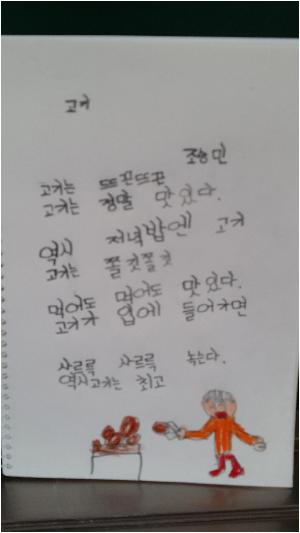 고기
조승민
고기는 뜨끈뜨끈
고기는 정말 맛있다.
역시 저녁밥엔 고기
고기는 쫄깃쫄깃
먹어도 먹어도 맛있다.
고기가 입에 들어가면
사르륵 사르륵 녹는다.
역시고기는 최고